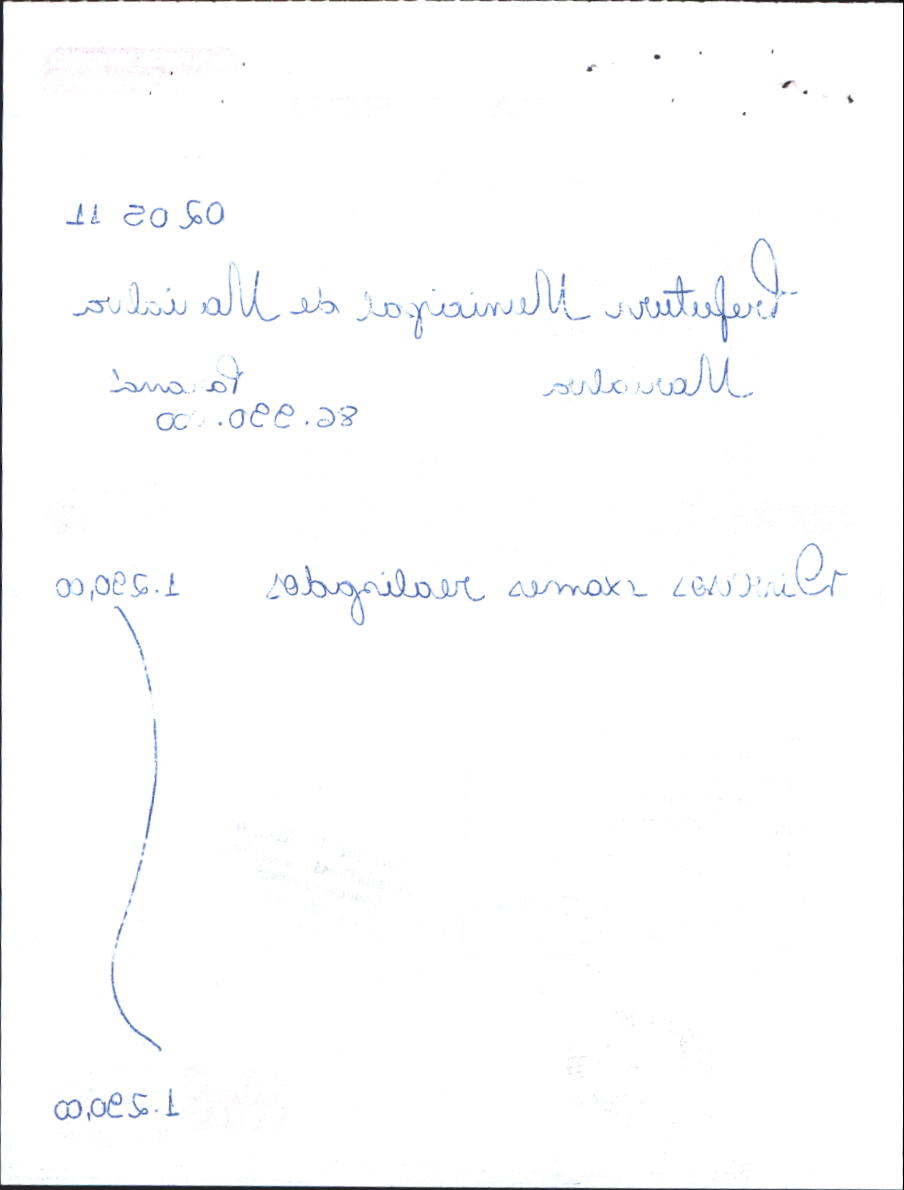 02 05 11
Prefeitura Municipal de Marialva
Marialva Paraná
86.990.000
Diversos exames realizados 1.290,00
1.290,00